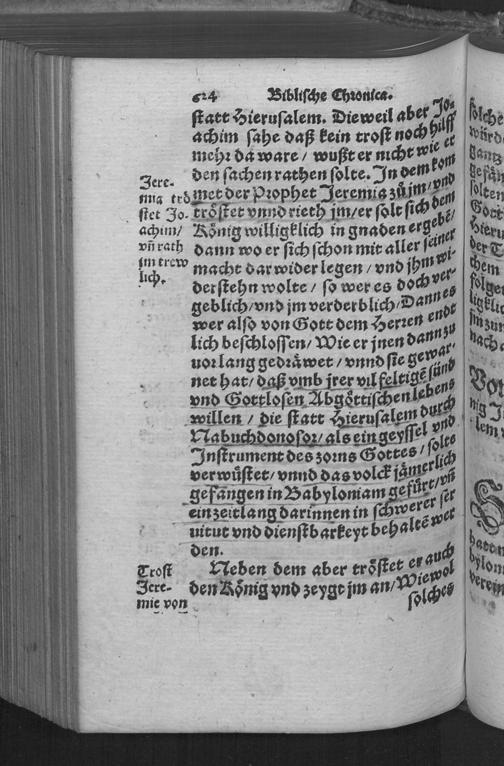 624 Biblische Chronica.
statt Hierusalem. Dieweil aber Jo-
achim sahe daß kein trost noch hilff
mehr da ware / wußt er nicht wie er
den sachen rathen solte. In dem kom
met der Prophet Jeremia zů jm / vnd
tröstet vnnd rieth jm / er solt sich dem
König willigklich in gnaden ergebē /
dann wo er sich schon mit aller seiner
macht darwider legen / vnd jhm wi-
derstehn wolte / so wer es doch ver-
geblich / vnd jm verderblich / Dann es
wer also von Gott dem Herren endt
lich beschlossen / Wie er jnen dann zu
uor lang gedräwet / vnnd sie gewar-
net hat / daß vmb jrer vilfeltigē sünd
vnd Gottlosen Abgöttischen lebens
willen / die statt Hierusalem durch
Nabuchdonosor / als ein geyssel vnd
Instrument des zorns Gottes / solte
verwüstet / vnnd das volck jämerlich
gefangen in Babyloniam gefürt / vñ
ein zeitlang darinnen in schwerer ser
uitut vnd dienstbarkeyt behaltē wer
den.
Neben dem aber tröstet er auch
den König vnd zeygt jm an / Wiewol
solches
Jere-
mia trö
stet Jo-
achim /
vñ rath
jm trew
lich.
Trost
Jere-
mie von
solche
würd
gantz
gefän
solten
Gott
Hieru
der T
chem
folget
ligklic
jm zun
nach a
Vor
nig J
lem
hatte
bylon